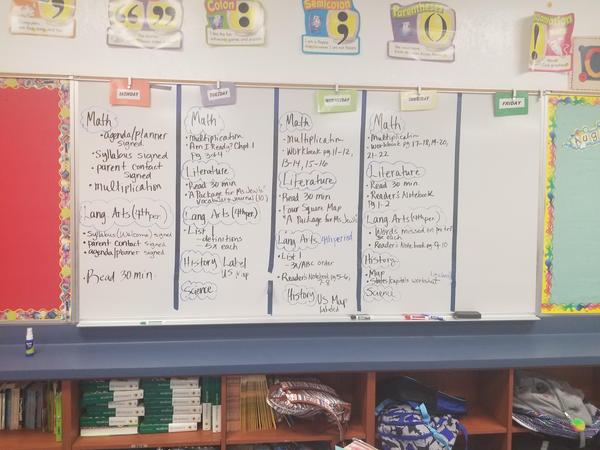 Colon
Semicolon
Parentheses
MONDAY
Math
• agenda/planner
signed
• Syllabus signed
• parent contact
signed
• multiplication
Lang. Arts (4th per)
• Syllabus (Welcome) signed
• parent contact signed
• agenda/planner signed
• Read 30 min.
TUESDAY
Math
• multiplication
Am I Ready? Chpt. 1
pg. 3+4
Literature
• Read 30 min
• "A Package for Ms. Jewls"
Vocabulary Journal (10)
Lang. Arts (4th per)
• List 1
- definitions
History Label
US Map
Science
WEDNESDAY
Math
• Multiplication
• Workbook pg 11-12,
13-14, 15-16
Literature
• Read 30 min
• Four Square Map
• "A Package for Ms. Jewls
Lang Arts 4th period
• List 1
- 3x/ABC order
• Reader's Notebook pg 5-6,
7-8
History US Map
labeled
THURSDAY
Math
• Multiplication
• Workbook pg 17-18, 19-20,
21-22
Literature
• Read 30 min
• Reader's Notebook
pg 1-2
Lang Arts (4th per)
• Words missed on pretest
each
• Reader's Notebook pg 9-10
History
• Map
• States/Capitals worksheet
Science
FRIDAY
Aug